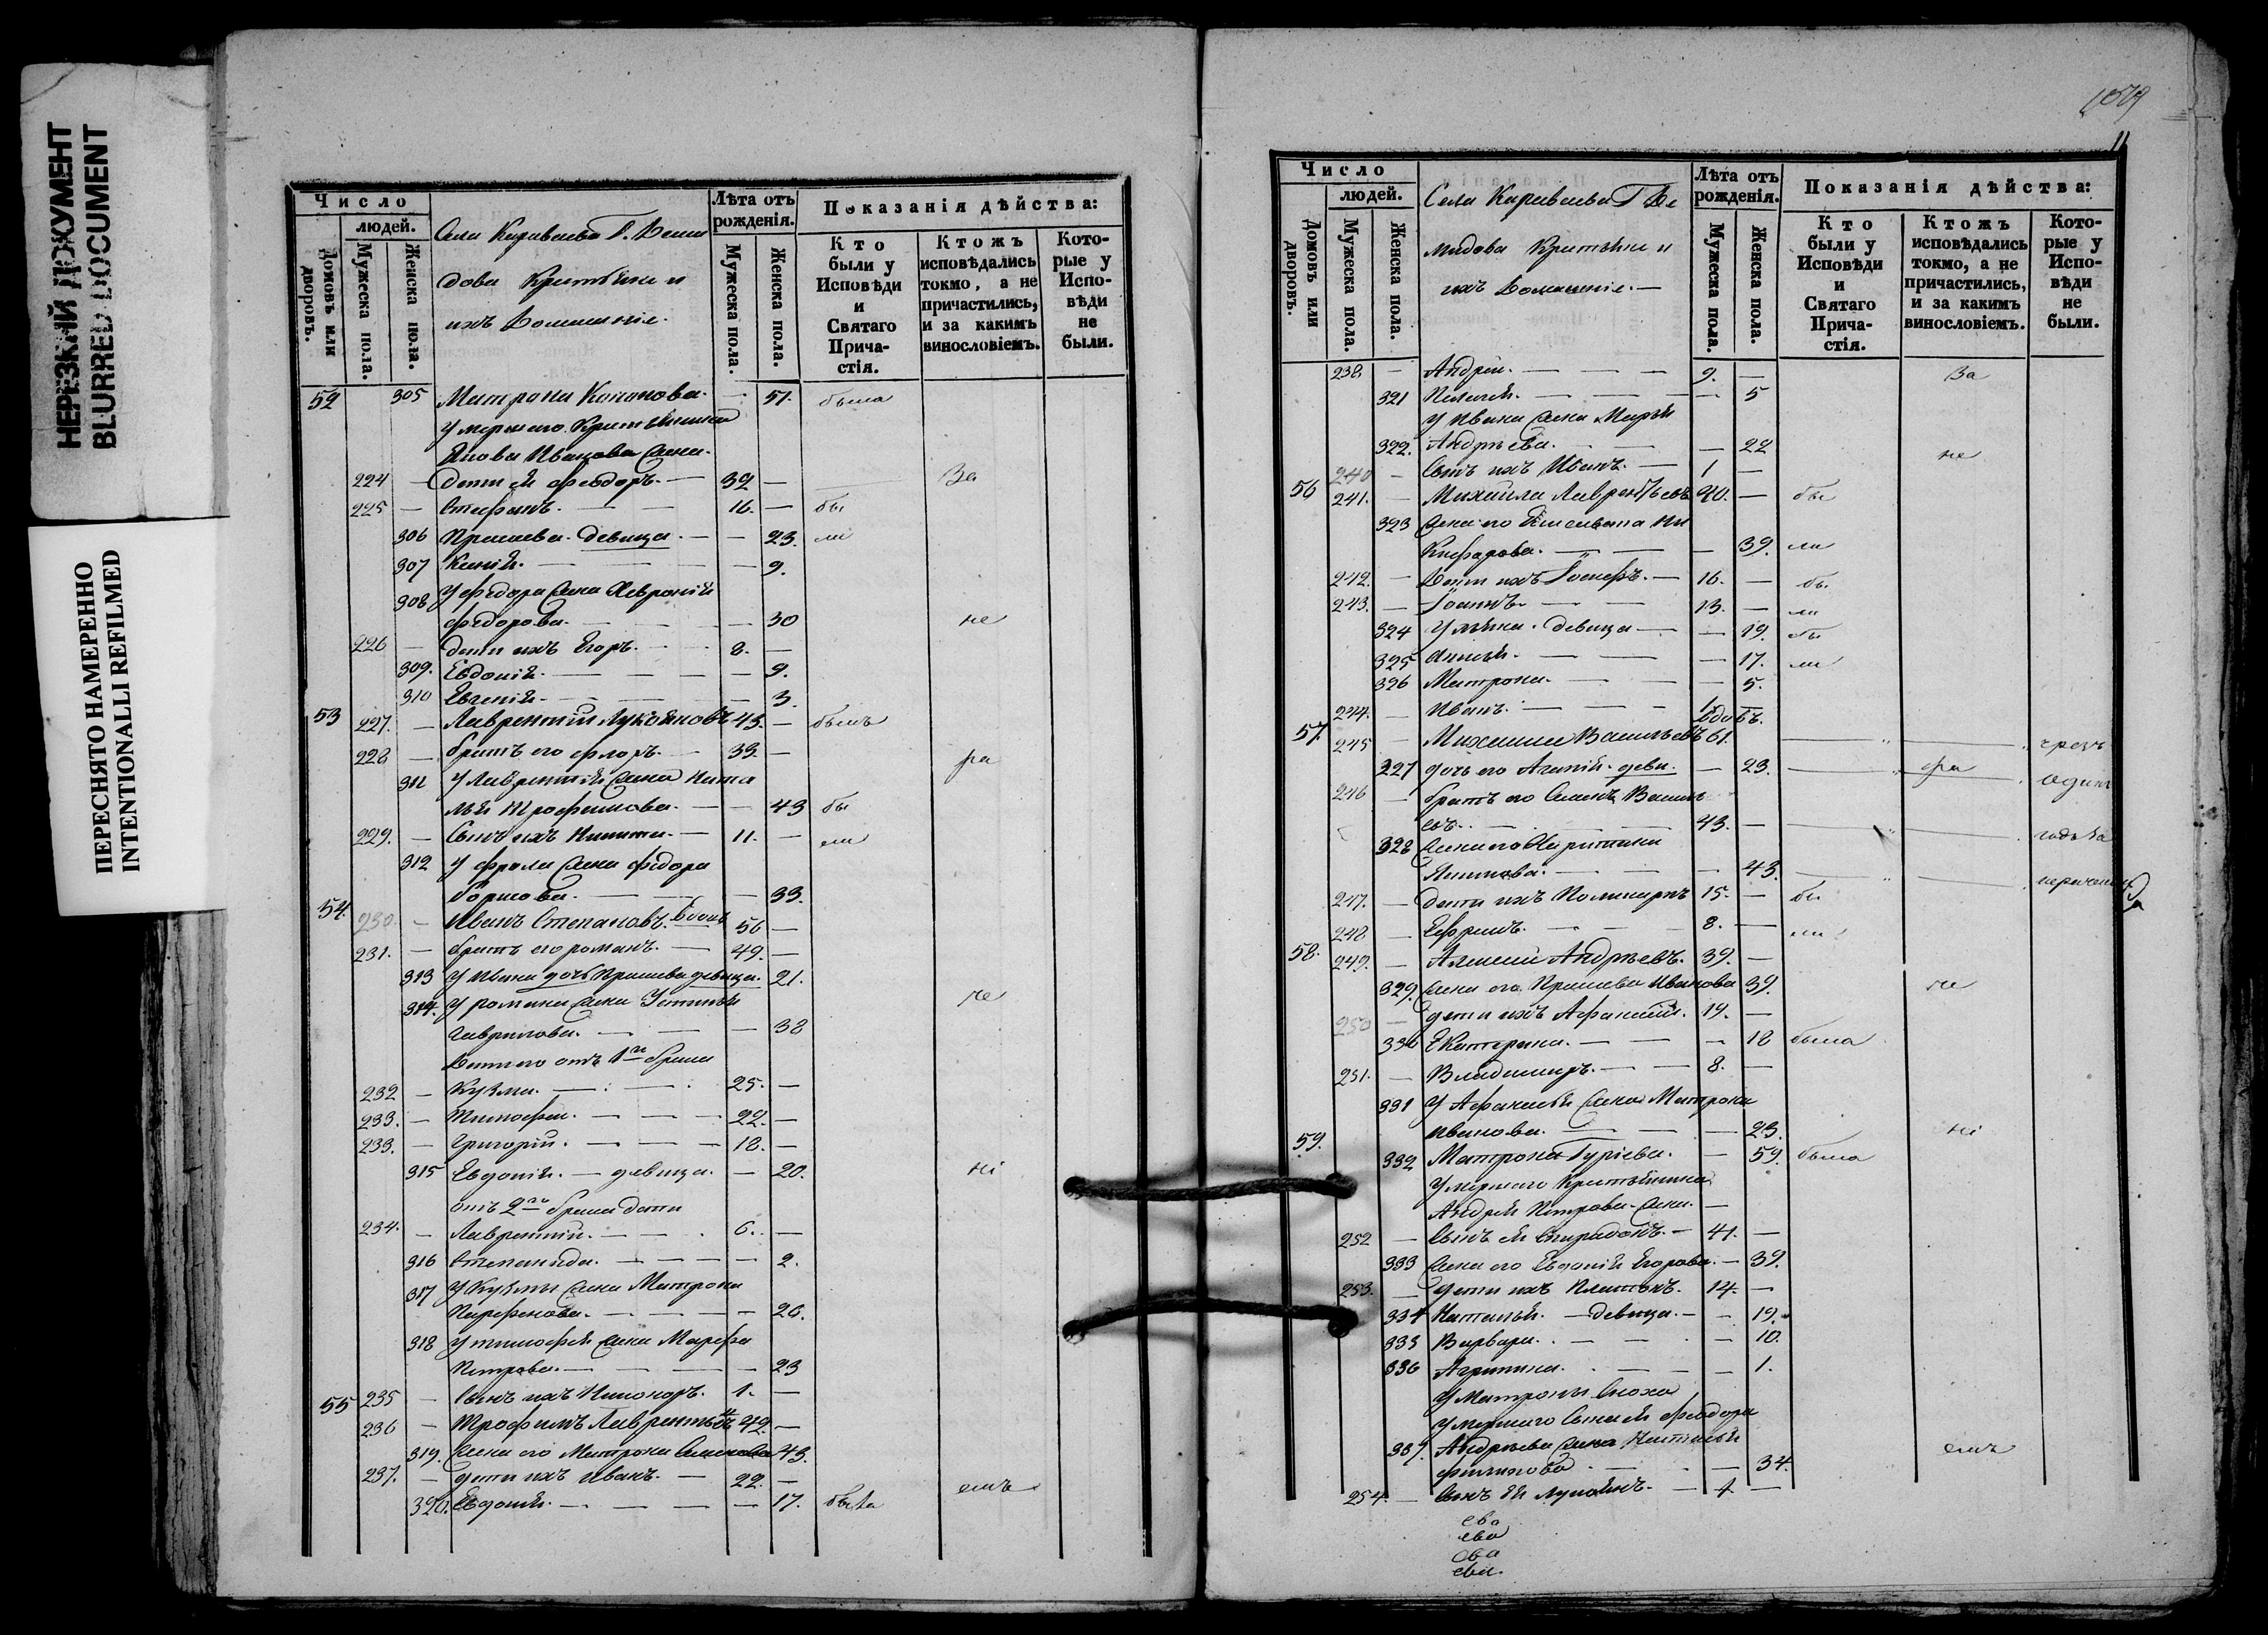 НЕРЕЗКИЙ ДОКУМЕНТ
BLURRED DOCUMENT
ПЕРЕСНЯТО НАМЕРЕННО
INTENTIONALLI REFILMED
Число
людей.
Домовъ или дворовъ.
Мужеска пола.
Женска пола.
Села Караваева Г. Деми
дова Крестьяне и
ихъ Домашніе.
Лѣта отъ рожденія.
Мужеска пола.
Женска пола.
Показанія дѣйства:
Кто были у Исповѣди и Святаго Причастія.
Ктожъ исповѣдались токмо, а не причастились, и за какимъ винословіемъ.
Которые у Исповѣди не были.
52 305 Матрона Кононова. — 51. была
Умершаго Крестьянина
Иванова Жена.
224 — дети ея Феодоръ. — 32 — За
225 — Стефанъ. — — 16. — бы
306 Прасковья девица. — — 23. ли
307 Ксенія. — — 9.
308 У Федора Жена Хавронія
Федорова. — — 30 не
226 — дети ихъ Егоръ. — 8. —
309. Евдокія. — — — 9.
310 Евгенія. — — — 3.
53 227. — Лаврентій Лукояновъ 45. — былъ
228 — братъ его Флоръ. — 33. — ра
311 У Лаврентія Жена Ната
лья Трофимова. — — 43 бы
229. — Сынъ ихъ Никита. — 11. — ли
312 У Фрола Жена Федора
Борисова. — — 33.
54. 230. — Иванъ Степановъ. вдовъ 56 —
231. — братъ его Романъ. — 49. —
313 У Ивана дочь Прасковья девица. 21.
314. У Романа Жена Устинья
Гаврилова. — — 38 че
Дети его отъ 1го брака
232 — Кузма. — — 25. —
233. — Тимофей. — — 22. —
233. — Григорій. — — 18. —
315 Евдокія. — девица. — 20. ні
отъ 2го брака дети
234. — Лаврентій. — — 6. —
316 Степанида. — — — 2.
317 У Кузмы Жена Матрона
Парфенова. — — — 26.
318 У Тимофея Жена Марфа
Петрова. — — — 23
235 — Сынъ ихъ Никоноръ. 1. —
55 236 — Трофимъ Лаврентьевъ 42. —
319. Жена его Матрона Семенова 43.
237. — дети ихъ Иванъ. — 22. —
320. Евдокія. — — — 17. была емъ
1079
11
Число
людей.
Домовъ или дворовъ.
Мужеска пола.
Женска пола.
Села Караваева Г. Де
мидова Крестьяне и
ихъ Домашніе. —
Лѣта отъ рожденія.
Мужеска пола.
Женска пола.
Показанія дѣйства:
Кто были у Исповѣди и Святаго Причастія.
Ктожъ исповѣдались токмо, а не причастились, и за какимъ винословіемъ.
Которые у Исповѣди не были.
238 — Андрей. — — — 9. — За
321 Пелагея. — — — 5
У Ивана Жена Марья
322. Андреева. — — 22
240 — Сынъ ихъ Иванъ. — 1 — не
56 241. — Михайла Лаврентьевъ 40. — бы
323 Жена его Елисавета Ни
кифорова. — — 39. ли
242. — Дети ихъ Іосифъ. — 16. — бы
243. — Іоаннъ. — — 13. — ли
324 Ульяна. девица — — 19. бы
325 — — 17. ли
326 Матрона. — — 5.
244. — Иванъ. — — — 1. —
57. 245 — Михаилъ Васильевъ вдовъ. 61. чрезъ
327 дочь его Агапія. деви. — 23. фа одинъ
246 — братъ его Семенъ Василь
евъ. — — 43. —
328 Жена его
— — 43.
247. — дети ихъ Поликарпъ 15. — бы
248 — Ефремъ. — — 8. — ли
58. 249. — Алексей Андреевъ. 39. —
329. Жена его Прасковья Иванова 39. ге
250 — дети ихъ Афанасій. 19. —
330 Екатерина. — — — 18 была
251. — Владимиръ. — — 8. —
331 У Афанасья Жена Матрона
Иванова. — — 23. ні
59. 332 Матрона Гуріева. — 59. была
Умершаго Крестьянина
Андрея Петрова Жена. —
252 — Сынъ ея Спиридонъ. — 41. —
333 Жена его Евдокія Егорова. — 39.
253. — дети ихъ Платонъ. 14. —
334 Наталья. — девица. — — 19.
335 Варвара. — — 10.
336 Агрипина. — — 1.
У Матроны Сноха
умершаго Сына ея Феодора
337. Андреева Жена Наталья
Филипова — — 34. емъ
254. — Сынъ ея Лукоянъ. — 4 —
ева
ева
ова
ева.